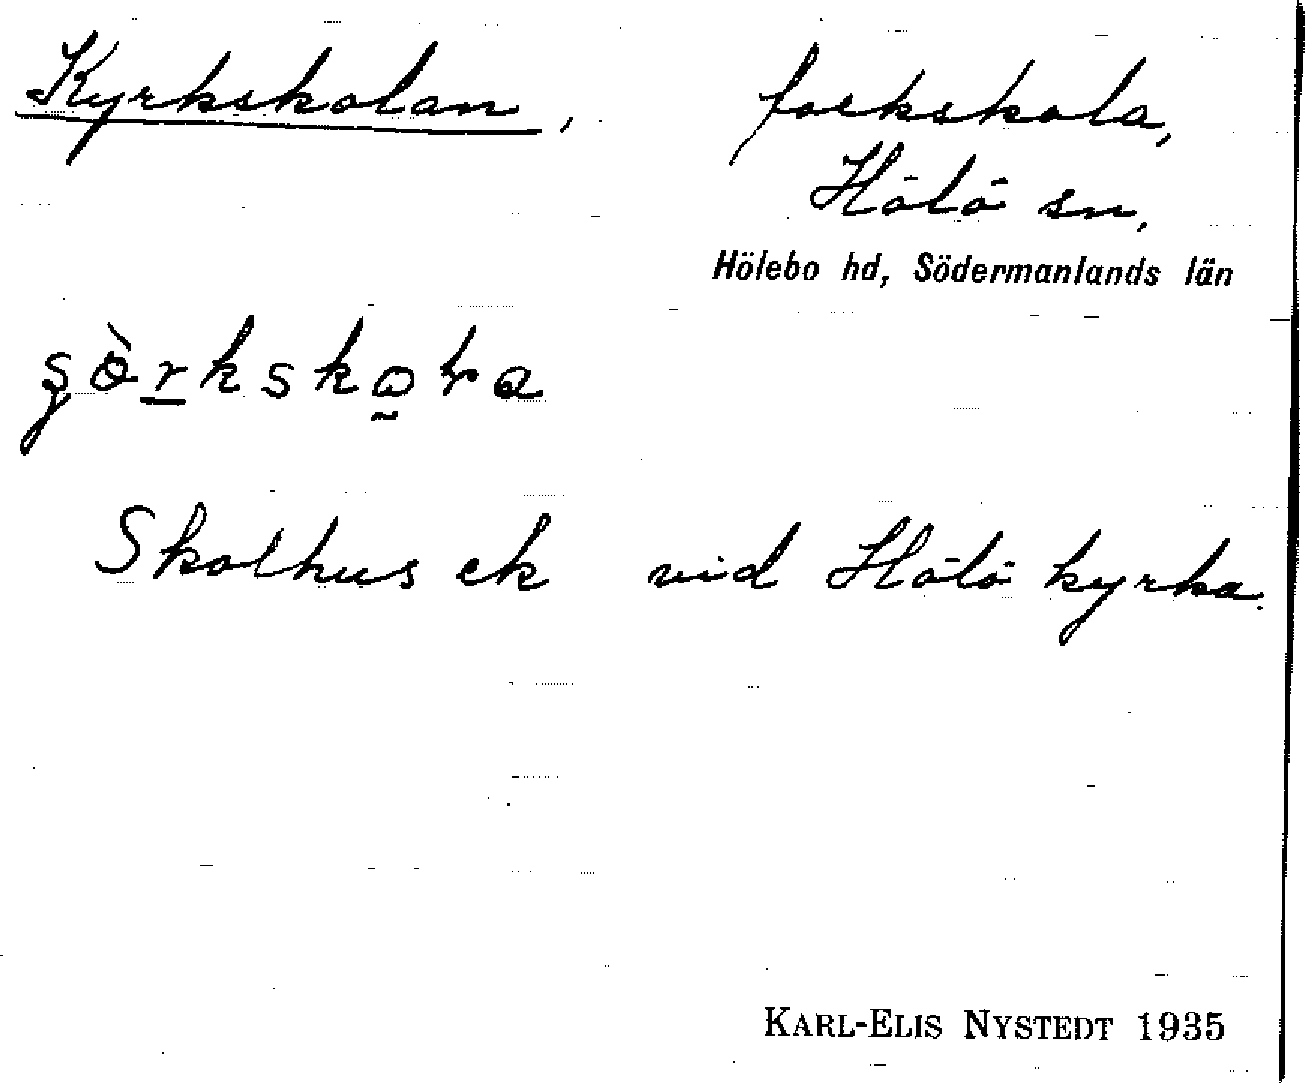 Kyrkskolan, folkskola,
Hölö sn.
Hölebo hd, Södermanlands län
Skolhus ek vid Hölö kyrka.
KARL-ELIS NYSTEDT 1935